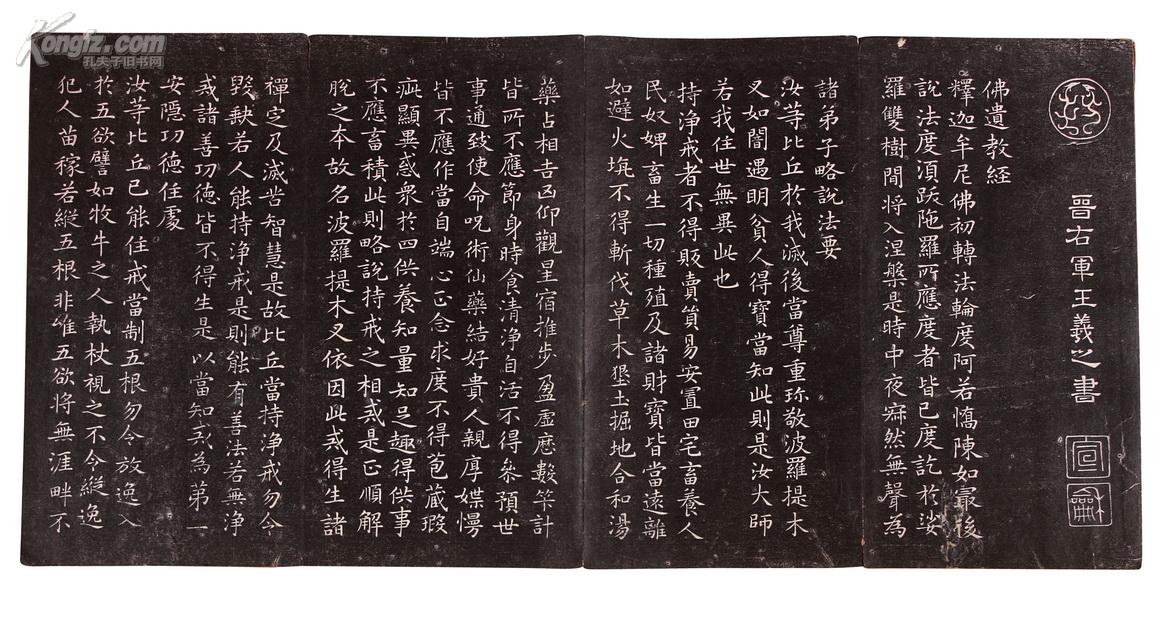 Kongfz.com
孔夫子旧书网
晉右軍王羲之書
宣
龢
佛遺教經
釋迦牟尼佛初轉法輪度阿若憍陳如最後
說法度須跋陁羅所應度者皆已度訖於娑
羅雙樹間將入涅槃是時中夜寂然無聲為
諸弟子略說法要
汝等比丘於我滅後當尊重珎敬波羅提木
叉如闇遇明貧人得寶當知此則是汝大師
若我住世無異此也
持淨戒者不得販賣貿易安置田宅畜養人
民奴婢畜生一切種殖及諸財寶皆當遠離
如避火坑不得斬伐草木墾土掘地合和湯
藥占相吉凶仰觀星宿推步盈虛曆數筭計
皆所不應節身時食清淨自活不得參預世
事通致使命呪術仙藥結好貴人親厚媟慢
皆不應作當自端心正念求度不得苞藏瑕
疵顯異惑衆於四供養知量知足趣得供事
不應畜積此則略說持戒之相戒是正順解
脫之本故名波羅提木叉依因此戒得生諸
禪定及滅苦智慧是故比丘當持淨戒勿令
毀缺若人能持淨戒是則能有善法若無淨
戒諸善功德皆不得生是以當知戒為第一
安隱功德住處
汝等比丘已能住戒當制五根勿令放逸入
於五欲譬如牧牛之人執杖視之不令縱逸
犯人苗稼若縱五根非唯五欲將無涯畔不